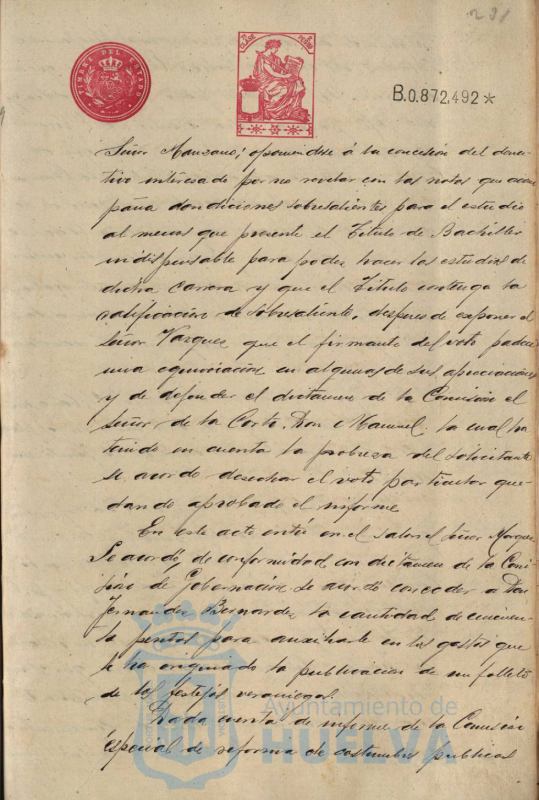 231
TIMBRE DEL ESTADO
B.0.872.492*
Señor Manzano, oponiendose á la concesion del dona-
tivo interesado por no revelar con las notas que acom
paña condiciones sobresalientes para el estudio
al menos que presente el Titulo de Bachiller
indispensable para poder hacer los estudios de
dicha carrera y que el Titulo contenga la
calificacion de sobresaliente, despues de exponer el
Señor Vazquez que el firmante del voto padece
una equivocacion en algunas de sus apreciaciones
y de defender el dictamen de la Comision el
Señor de la Corte, Don Manuel, la cual ha
tenido en cuenta la pobreza del solicitante
se acordo desechar el voto particular que-
dando aprobado el informe
En este acto entró en el salon el Señor
Se acordó de conformidad con dictamen de la Comi
sion de Gobernacion se acordó conceder a Don
Fernando Bernardez la cantidad de cincuen-
ta pesetas para auxiliarle en los gastos que
le ha originado la publicacion de un folleto
de los festejos veraniegos.
Dada cuenta de informe de la Comision
especial de reforma de costumbres publicas
Ayuntamiento de
HUELVA